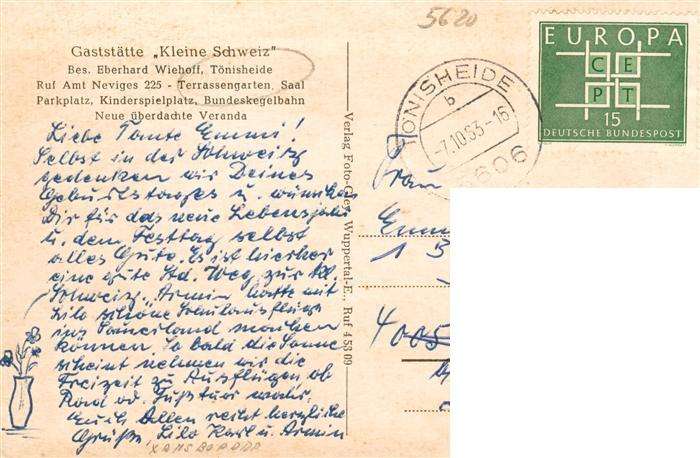 5620
Gaststätte „Kleine Schweiz"
Bes. Eberhard Wiehoff, Tönisheide
Ruf Amt Neviges 225 - Terrassengarten, Saal
Parkplatz, Kinderspielplatz, Bundeskegelbahn
Neue überdachte Veranda
Liebe Tante Emmi!
Selbst in der Schweitz
gedenken wir Deines
Geburtstages u. wünschen
Dir für das neue Lebensjahr
u. dem Festtag selbst
alles Gute. Es ist hierher
eine gute Std. Weg zur kl.
Schweitz. Armin hatte mit
Lilo schöne Schulausflüge
ins Sauerland machen
können. So bald die Sonne
scheint nehmen wir die
Freizeit zu Ausflügen ob
Rad od. Fußtour wahr.
Euch Allen recht herzliche
Grüße, Lilo Karl u. Armin
Verlag Foto-Grey, Wuppertal-E., Ruf 4 53 09
TÖNISHEIDE
b
-7.10.63-16
5606
EUROPA
CEPT
15
DEUTSCHE BUNDESPOST
Frau
Emm
1 B
4005